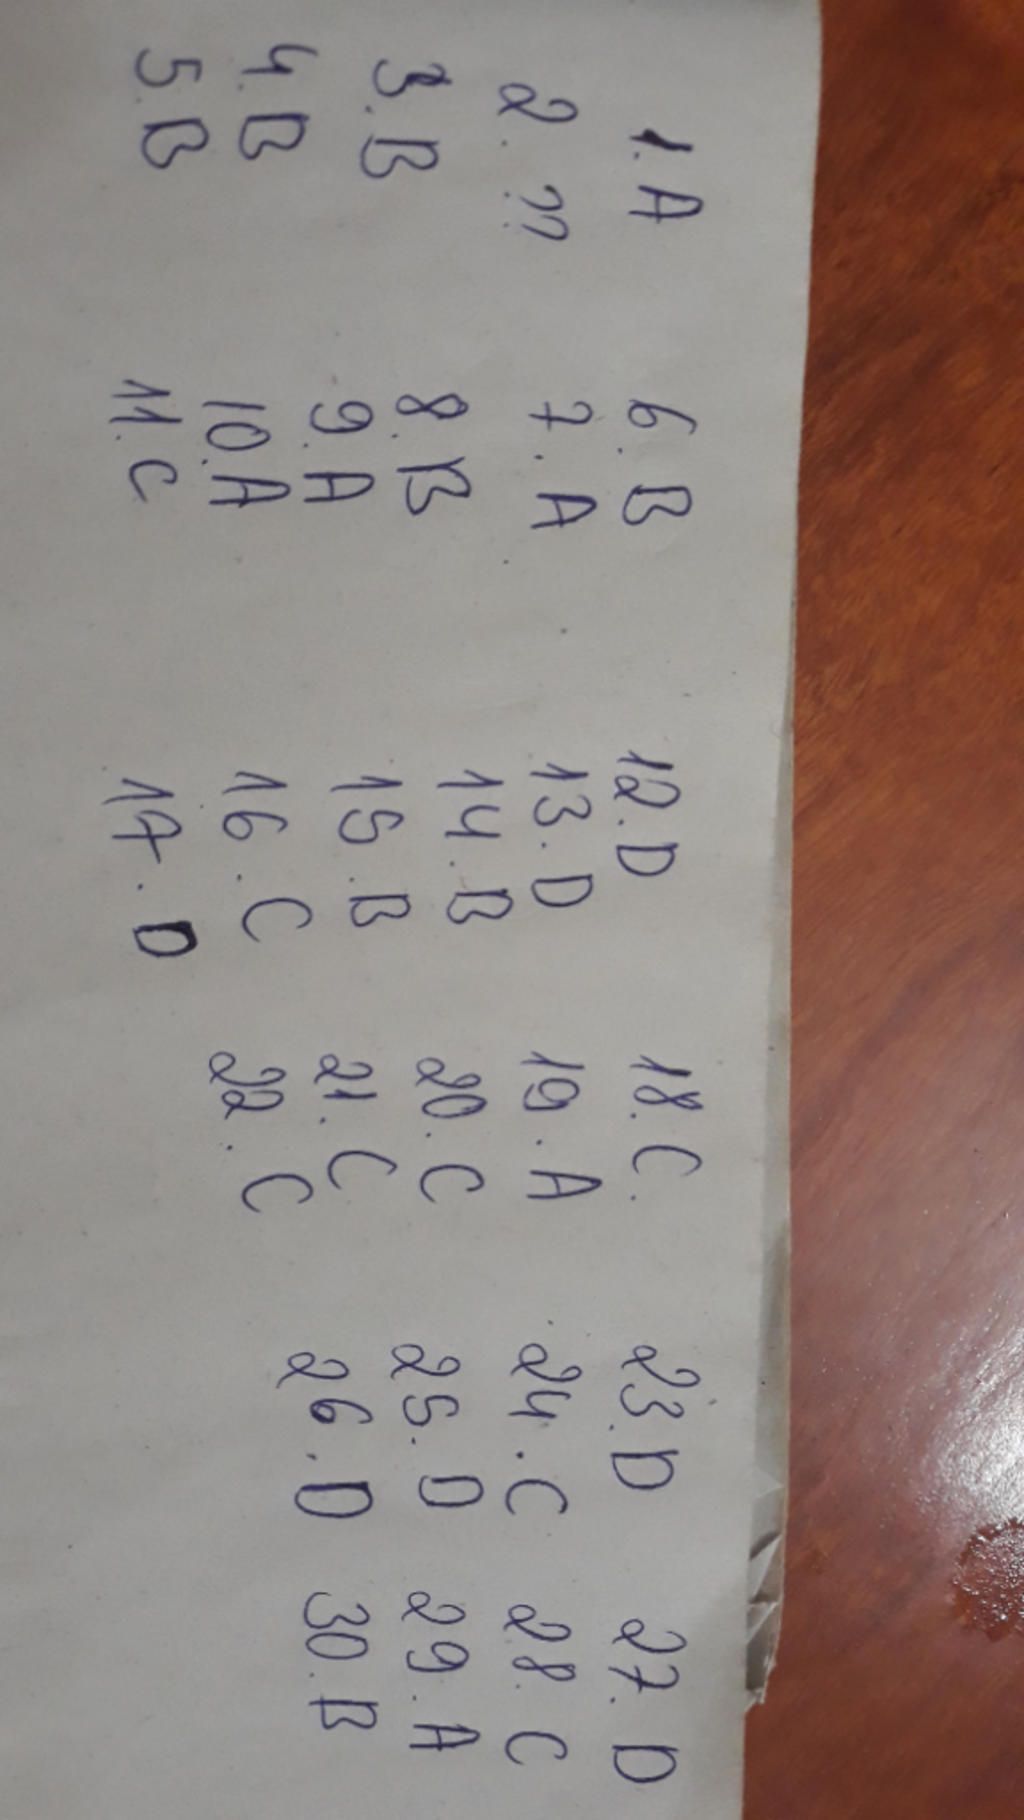 1. A
2. ??
3. B
4. B
5. B
6. B
7. A
8. B
9. A
10. A
11. C
12. D
13. D
14. B
15. B
16. C
17. D
18. C.
19. A
20. C
21. C
22. C
23. D
24. C
25. D
26. D
27. D
28. C
29. A
30. B